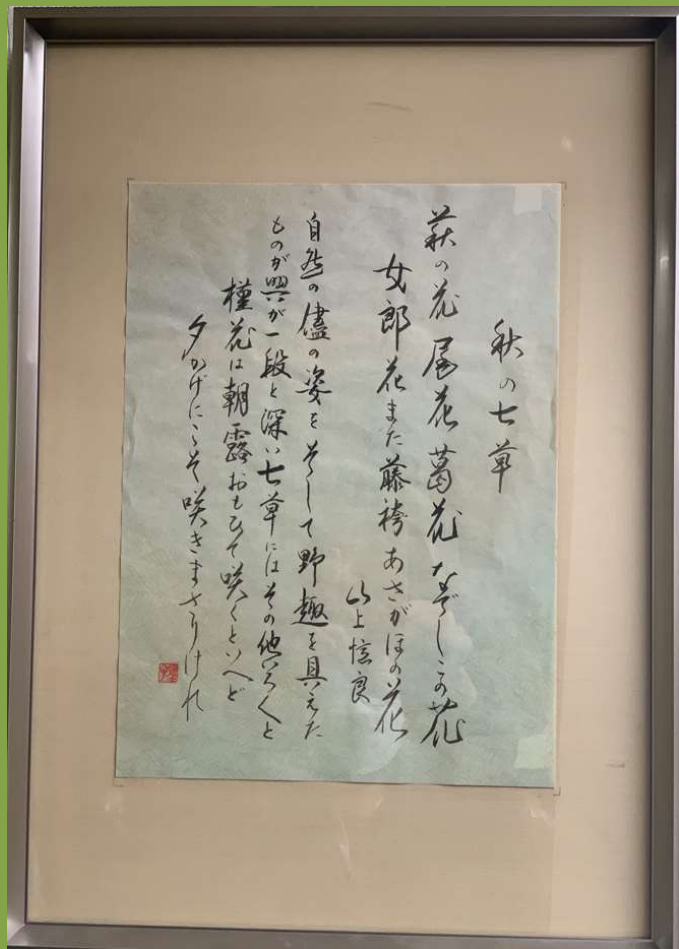 秋の七草
萩の花尾花葛花なでしこの花
女郎花また藤袴あさがほの花
山上憶良
自然の儘の姿をそして野趣を具えた
ものが興が一段と深い七草にはその他いろくと
槿花は朝露おもひて咲くといへど
夕かげにこそ咲きまさりけれ